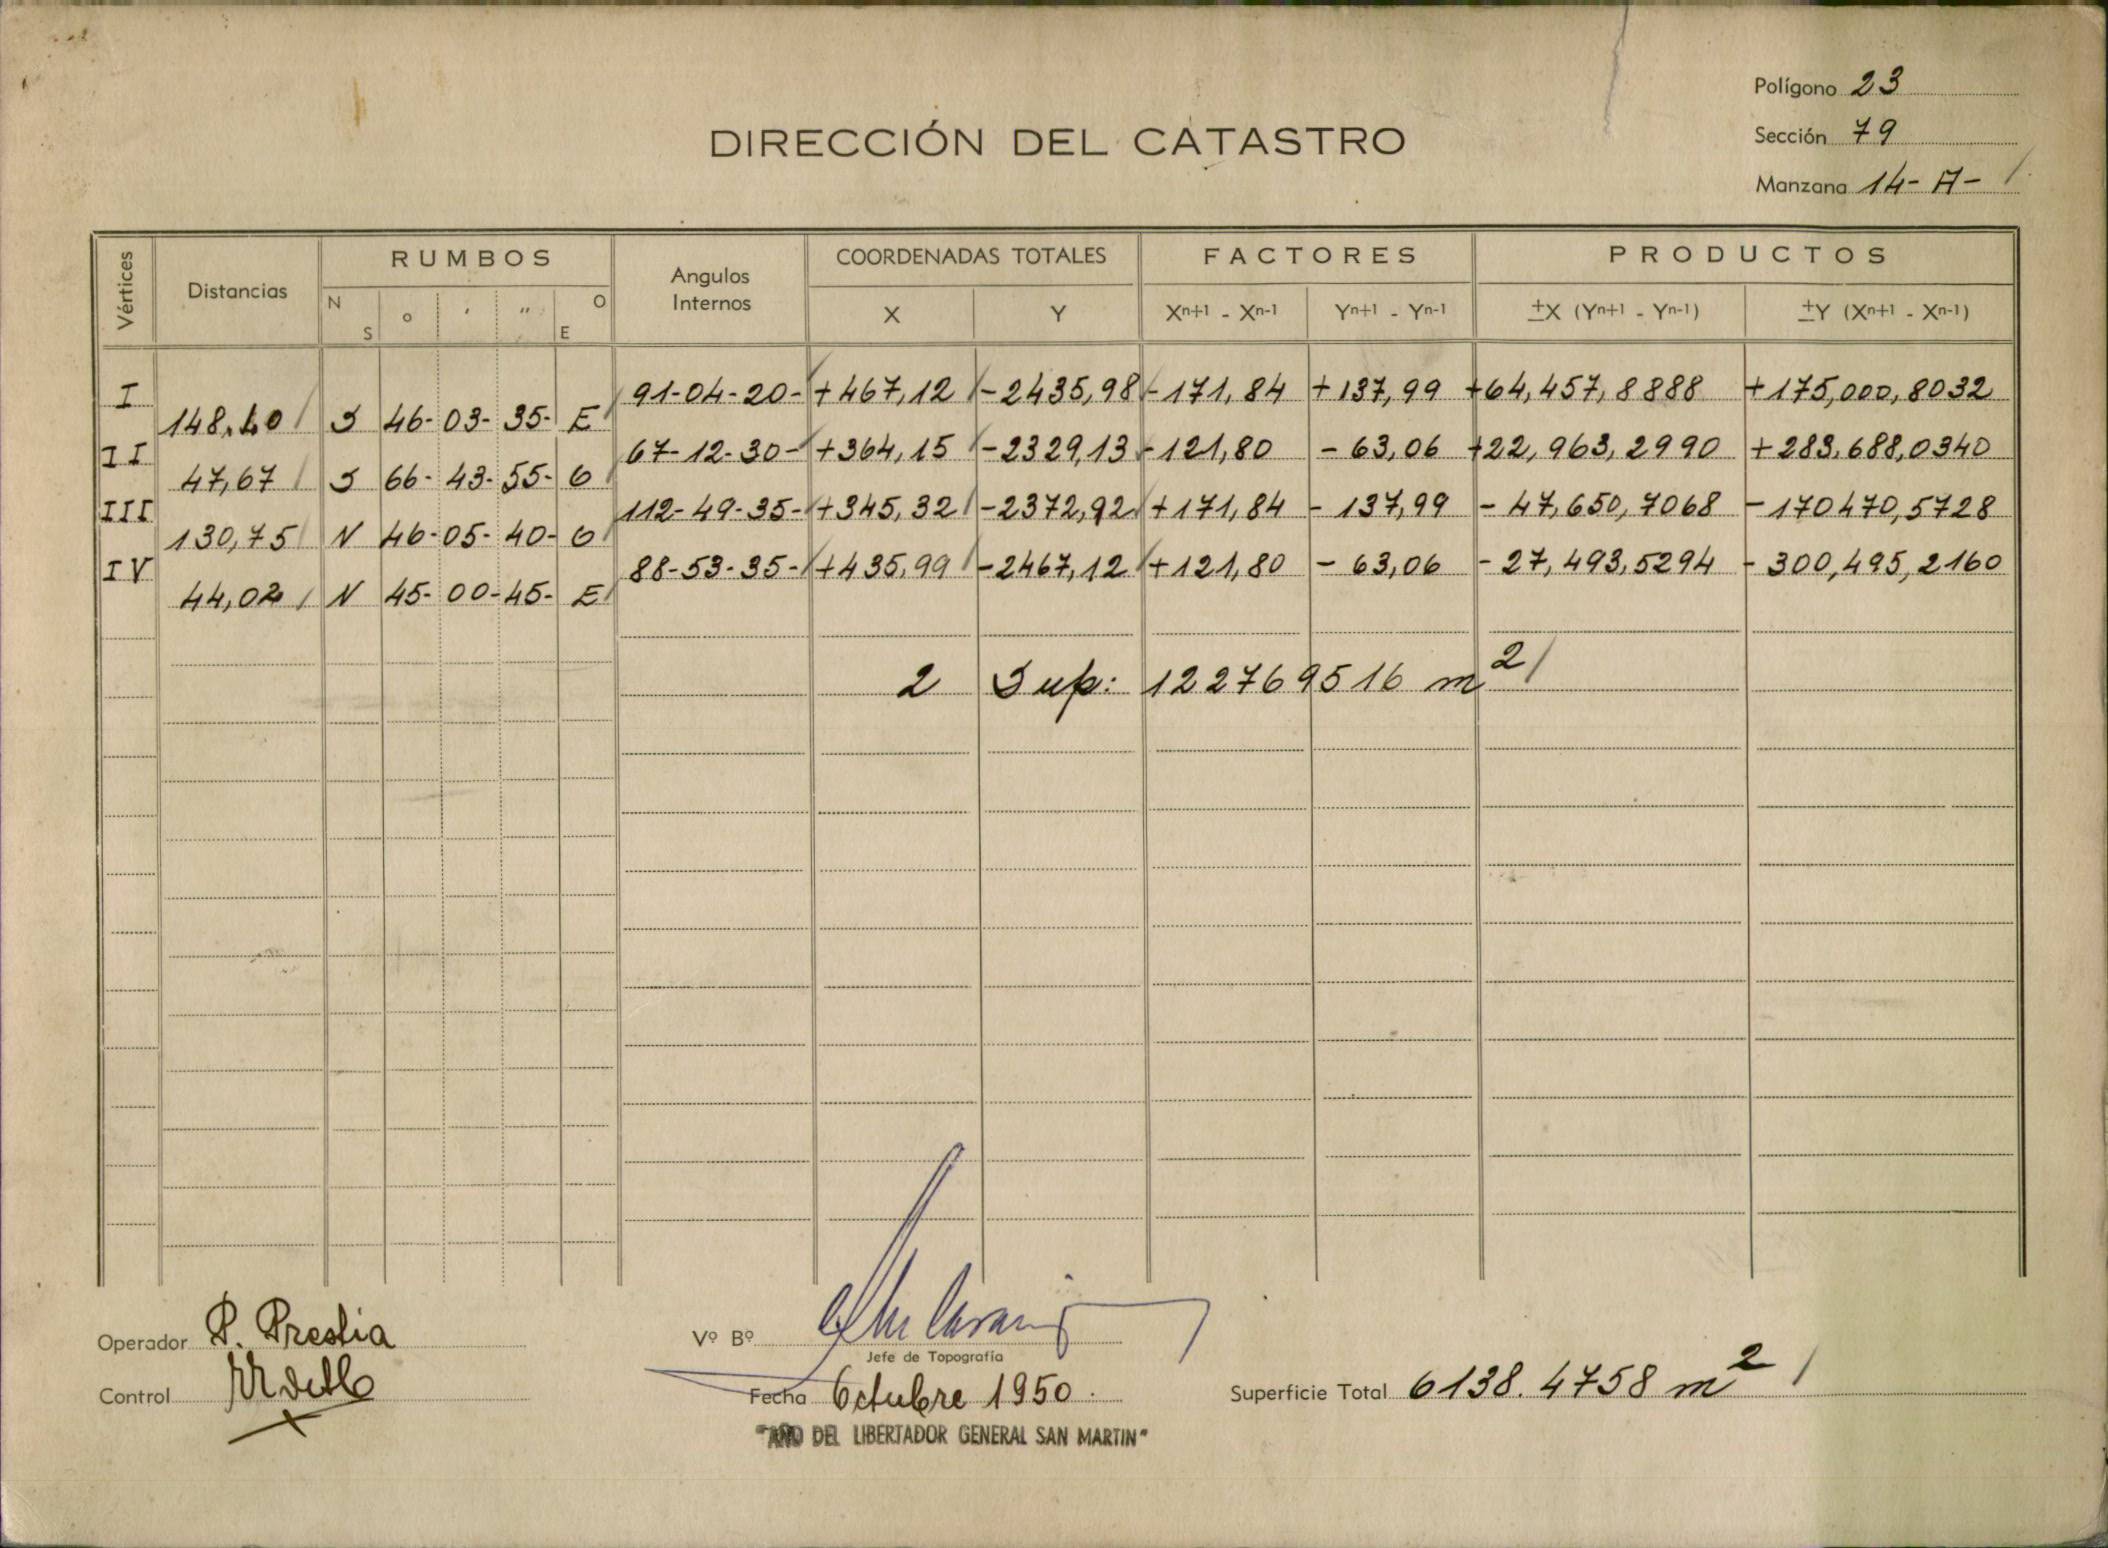 Polígono 23
Sección 79
Manzana 14-A-
DIRECCIÓN DEL CATASTRO
Vértices Distancias RUMBOS Angulos Internos COORDENADAS TOTALES FACTORES PRODUCTOS
N S o ' " O E X Y Xn+1 - Xn-1 Yn+1 - Yn-1 ±X (Yn+1 - Yn-1) ±Y (Xn+1 - Xn-1)
I 91-04-20- +467,12 -2435,98 -171,84 +137,99 +64,457,8888 +175,000,8032
148,40 S 46-03-35- E
II 67-12-30- +364,15 -2329,13 -121,80 -63,06 +22,963,2990 +283,688,0340
47,67 S 66-43-55- O
III 112-49-35- +345,32 -2372,92 +171,84 -137,99 -47,650,7068 -170470,5728
130,75 N 46-05-40- O
IV 88-53-35- +435,99 -2467,12 +121,80 -63,06 -27,493,5294 -300,495,2160
44,02 N 45-00-45- E
2 Sup: 122769516 m2
Operador P. Prestia
Control
Vº Bº
Jefe de Topografía
Fecha Octubre 1950.
"AÑO DEL LIBERTADOR GENERAL SAN MARTIN"
Superficie Total 6138.4758 m2